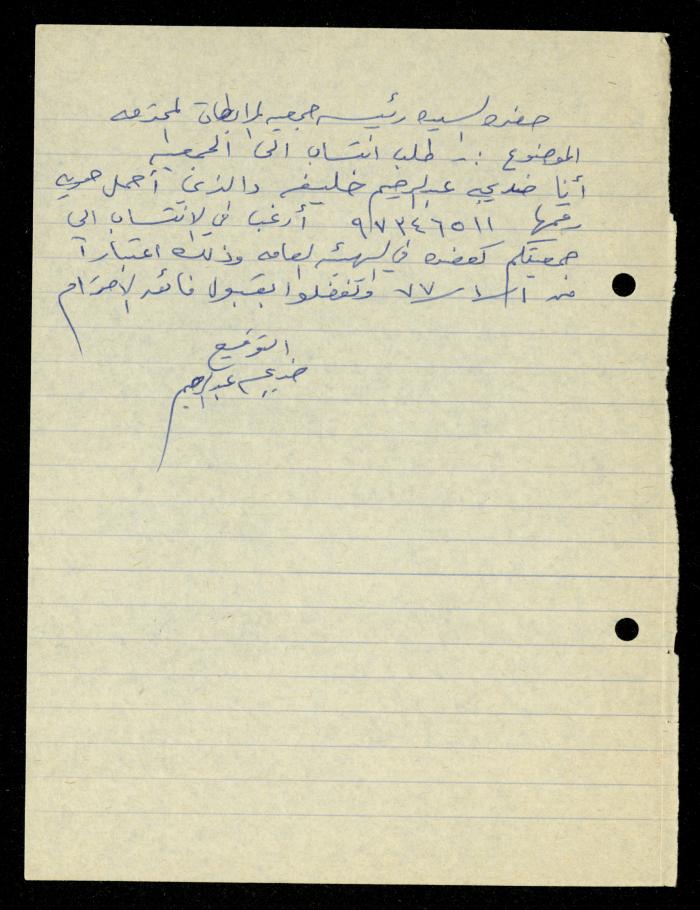 حضرة السيده رئيسه جمعيه المرابطات المحترمه
الموضوع :- طلب انتساب الى الجمعيه
أنا خديجه عبدالرحيم خليفه والذي أحمل هويه
رقمها ٩٧٣٤٦٥١١ أرغب في الانتساب الى
جمعيتكم كعضوه في الهيئه العامه وذلك اعتباراً
من ١/١/٧٧ وتفضلوا بقبول فائق الاحترام
التوقيع
خديجه عبدالرحيم